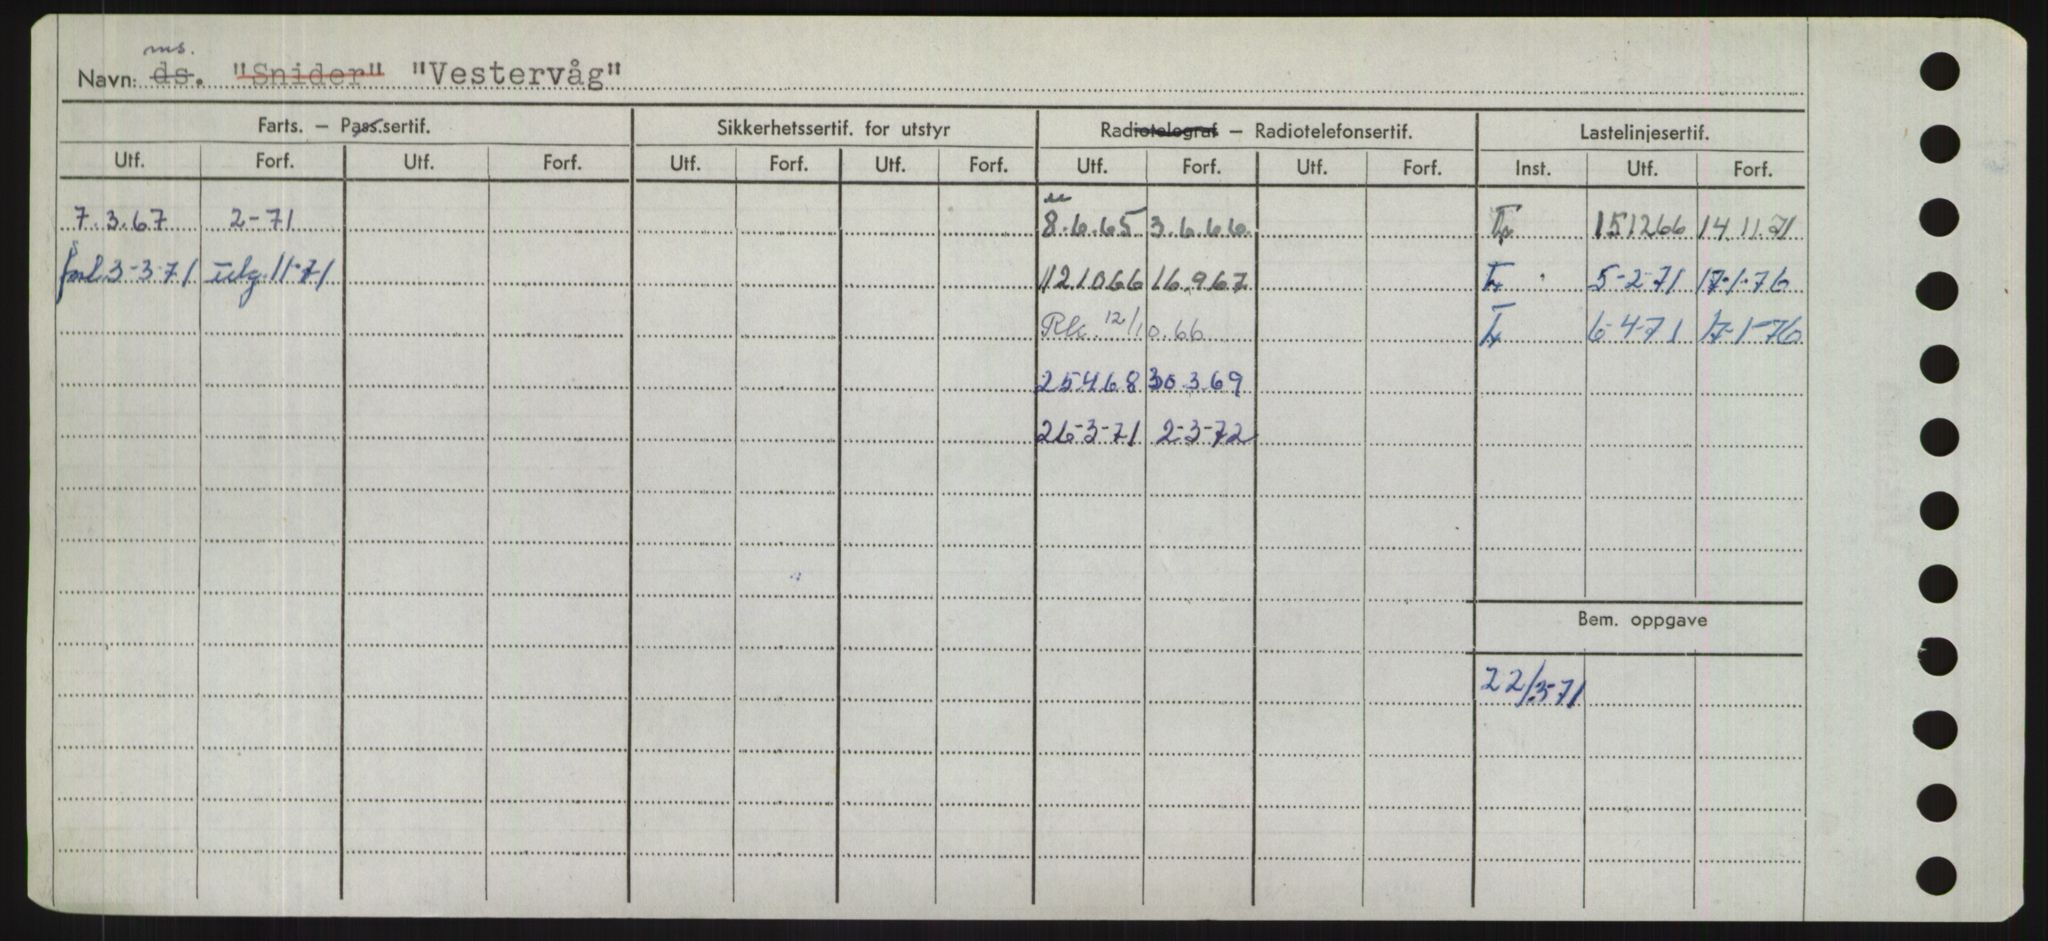 ms.
Navn: ds. "Snider" "Vestervåg"
Farts. – Pass.sertif. Sikkerhetssertif. for utstyr Radiotelegraf – Radiotelefonsertif. Lastelinjesertif.
Utf. Forf. Utf. Forf. Utf. Forf. Utf. Forf. Utf. Forf. Utf. Forf. Inst. Utf. Forf.
7.3.67 2-71 8.6.65 3.6.66 151266 14.11.71
forl 3-3-71 utg. 11-71 121066 16.967 5-2-71 17-1-76
12/10.66 6-4-71 17-1-76
25468 30.3.69
26-3-71 2-3-72
Bem. oppgave
22/3-71